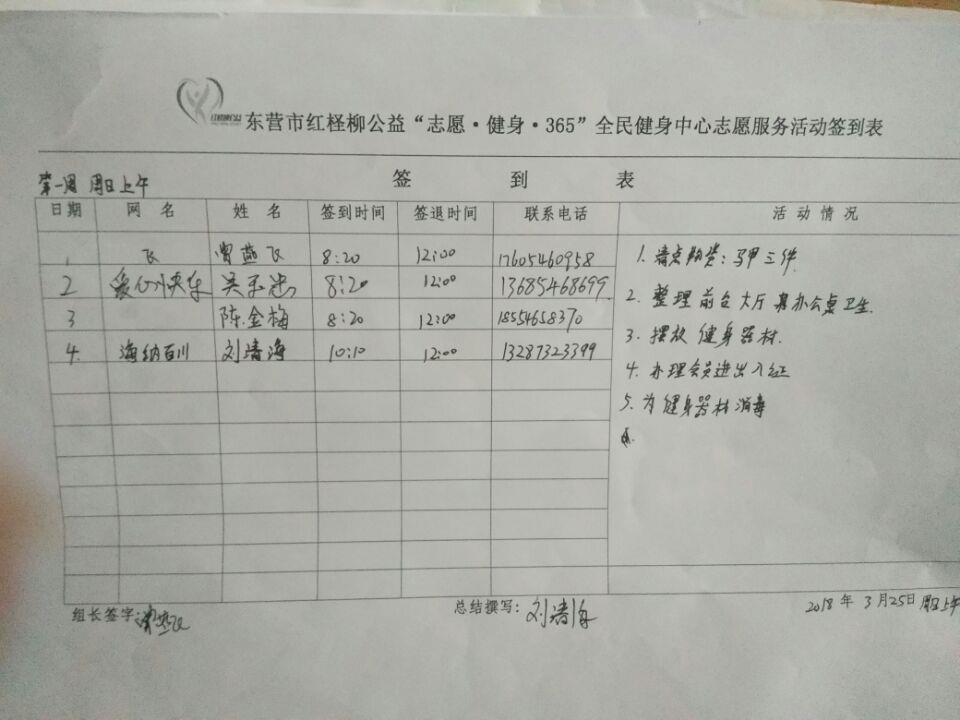 红柽柳公益
东营市红柽柳公益“志愿·健身·365”全民健身中心志愿服务活动签到表
第一周 周日上午
签 到 表
日期 网 名 姓 名 签到时间 签退时间 联系电话 活动情况
1 飞 曾燕飞 8:20 12:00 17605460958
2 爱心快车 8:20 12:00 13685468699
3 陈金梅 8:20 12:00 18554658370
4. 海纳百川 刘清海 10:10 12:00 13287323399
1. 清点物资:马甲三件
2. 整理前台大厅 办公桌卫生.
3. 摆放健身器材.
4. 办理会员进出入证
5. 为健身器材消毒
组长签字:曾燕飞
总结撰写:刘清海
2018年3月25日 周日上午